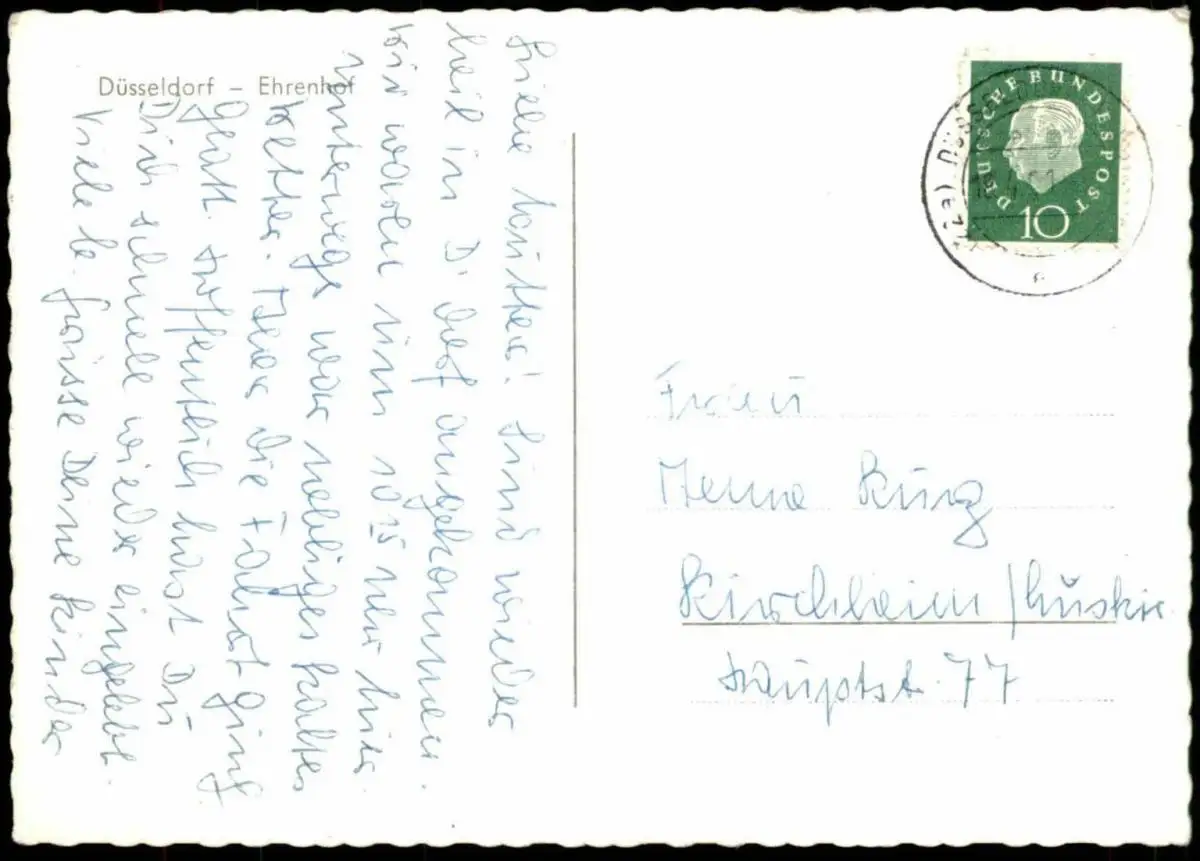 Düsseldorf – Ehrenhof
Liebe Mutter! Sind wieder
heil in D. dorf angekommen.
Wir waren um 10 15 Uhr hier.
Unterwegs war nebliges kaltes
Wetter. Aber die Fahrt ging
glatt. Hoffentlich hast Du
Dich schnell wieder eingelebt.
Viele l. Grüsse Deine Kinder
DEUTSCHE BUNDESPOST
10
(22a) DÜSSELDORF
e
Frau
Kurz
Kirchheim
Hauptst. 77